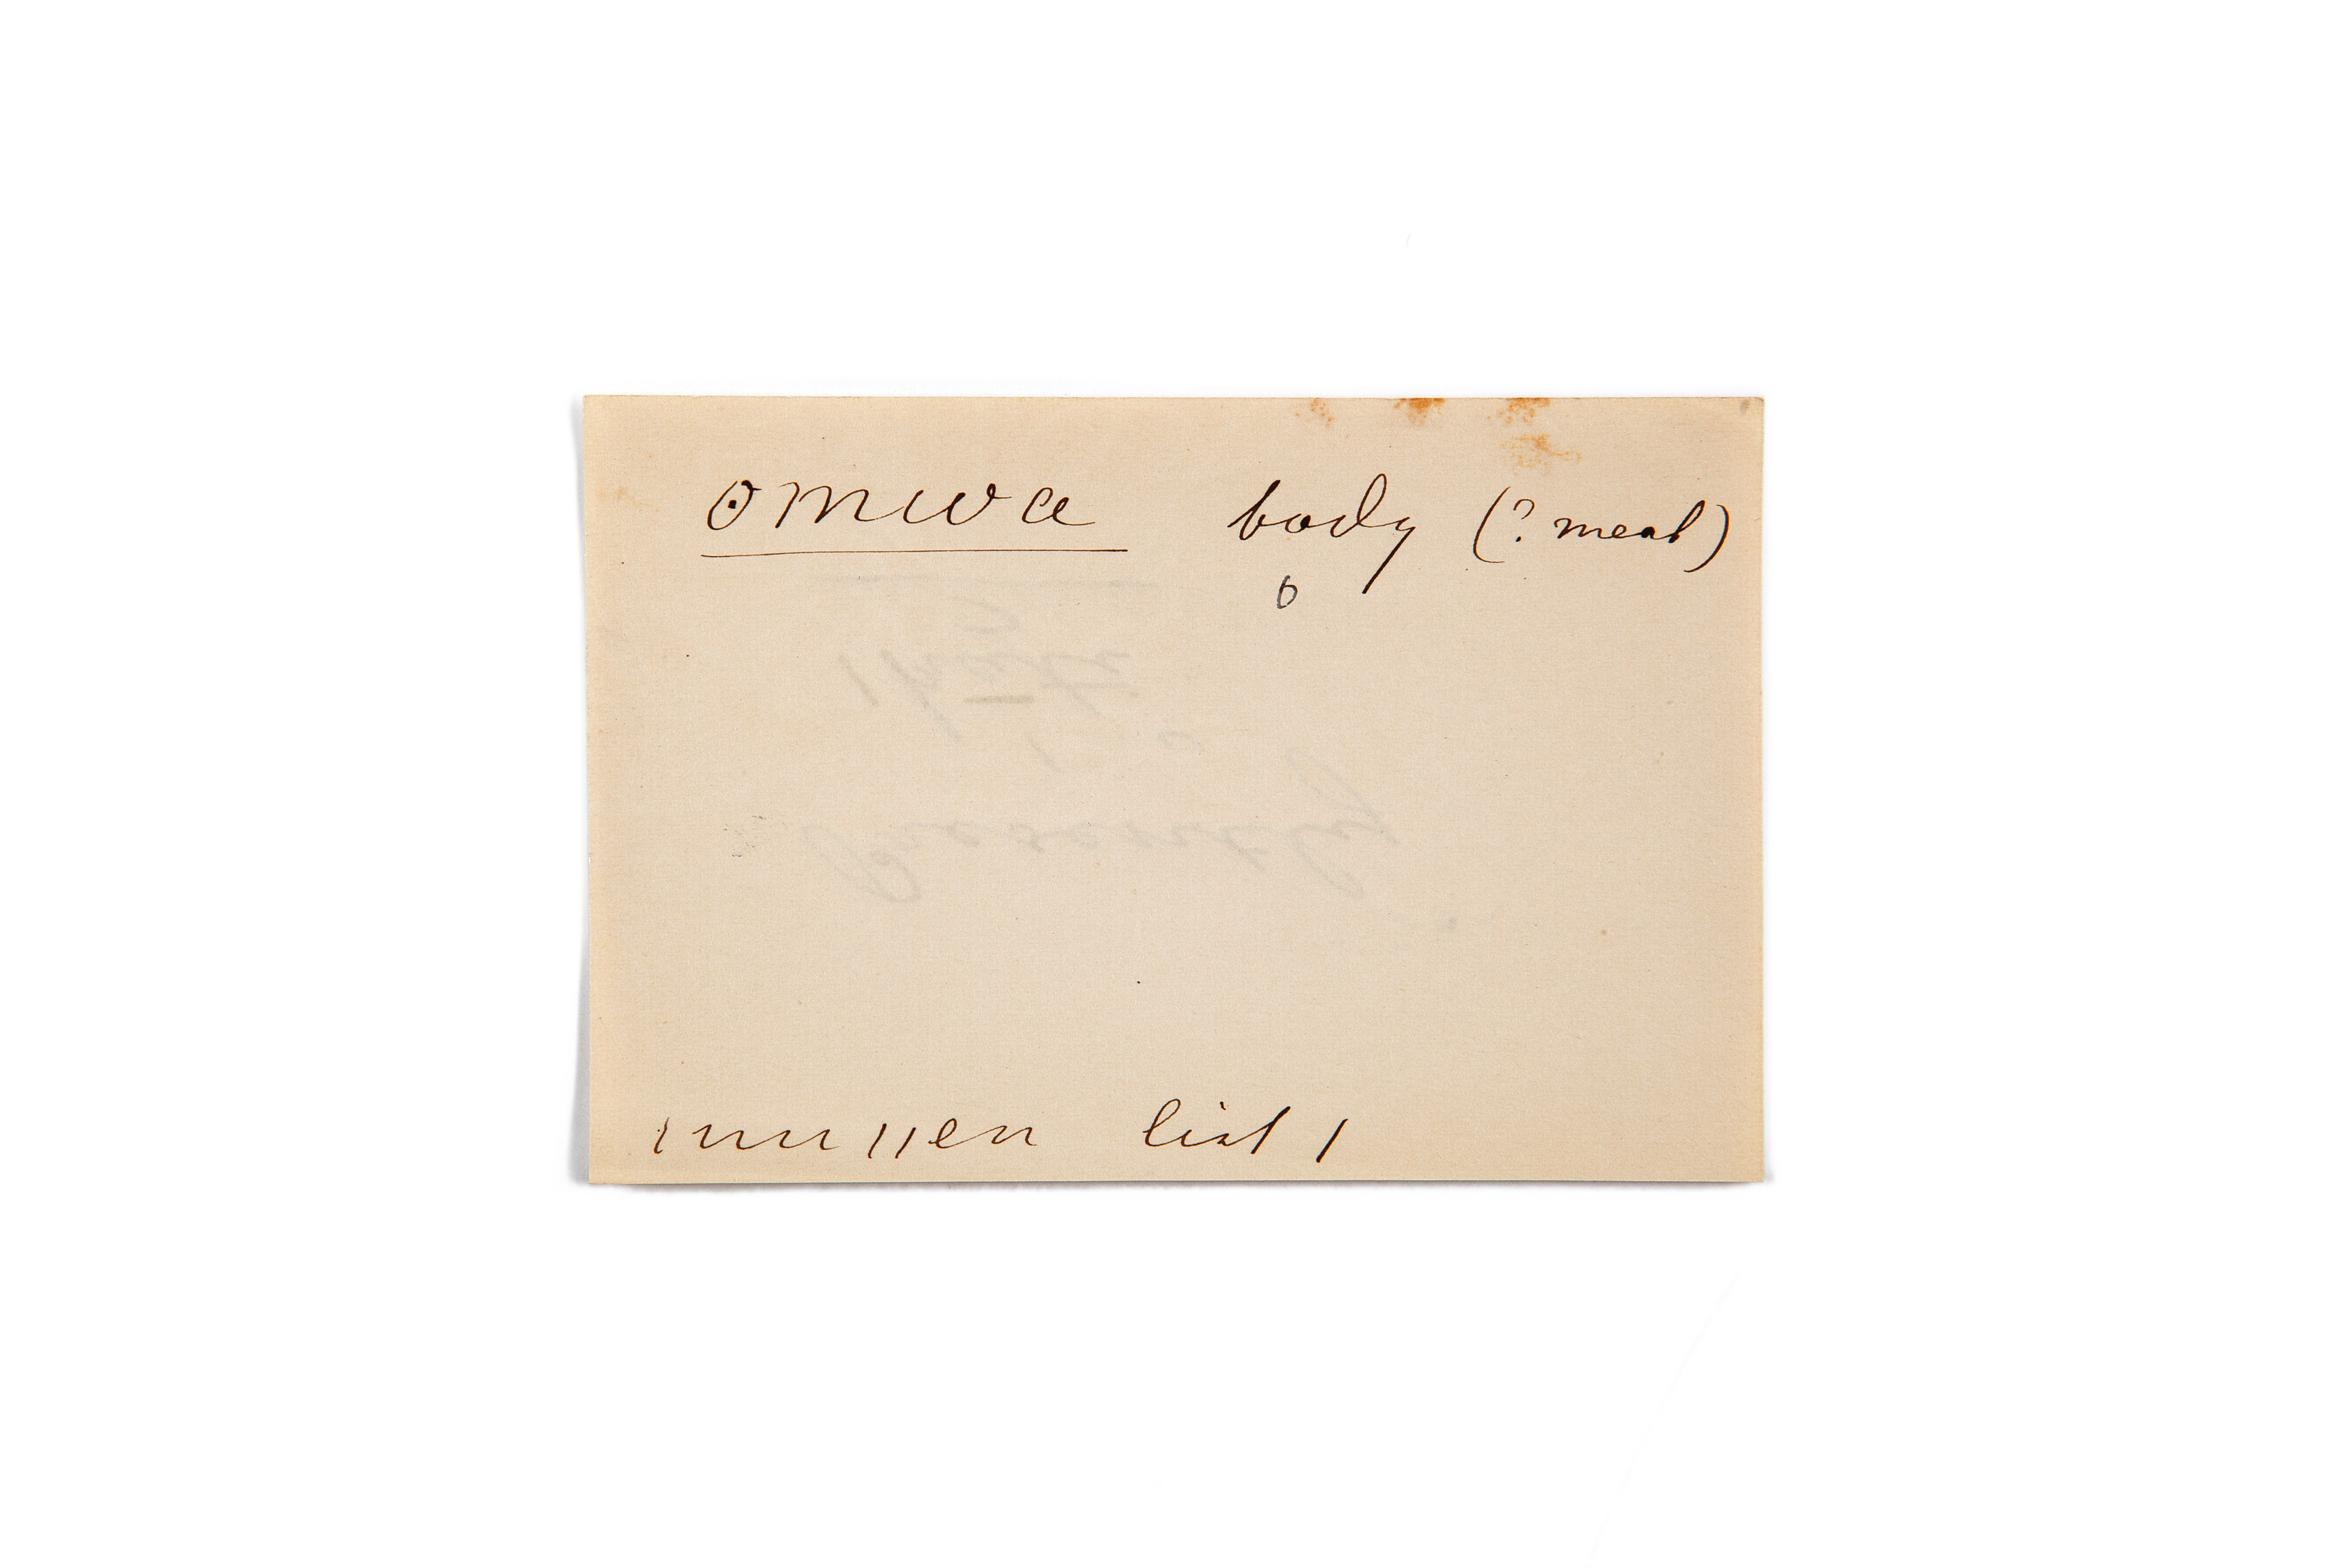 omwa body (? meat)
6
list 1